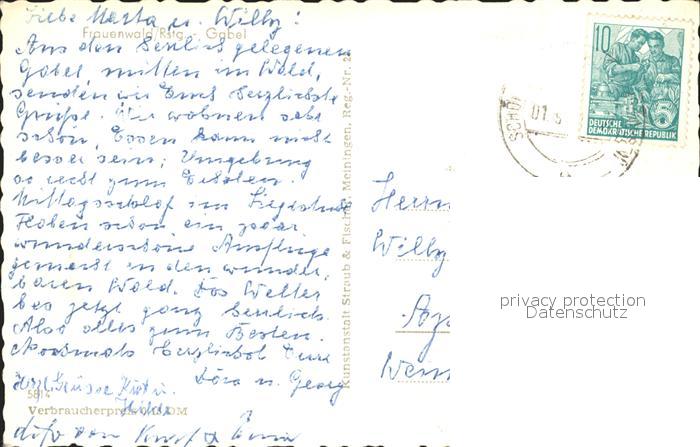 Liebe Marta u. Willy!
Frauenwald/Rstg. - Gabel
Aus dem herrlich gelegenen
Gabel, mitten im Wald,
senden wir Euch herzlichste
Grüße. Wir wohnen sehr
schön, Essen kann nicht
besser sein; Umgebung
so recht zum Erholen.
Mittagsschlaf im Liegestuhl
Haben schon ein paar
wunderschöne Ausflüge
gemacht in den wunder-
baren Wald. Das Wetter
bis jetzt ganz herrlich.
Also alles zum Besten.
Nochmals herzlichst Eure
Dora u. Georg
Herzl. Grüsse Kurt u.
Hilde
5814
Verbraucherpreis DM
dito von Kurt
Kunstanstalt Straub & Fischer Meiningen, Reg.-Nr.
10
5
DEUTSCHE
DEMOKRATISCHE REPUBLIK
01.
Herrn
Willy
Weim
privacy protection
Datenschutz